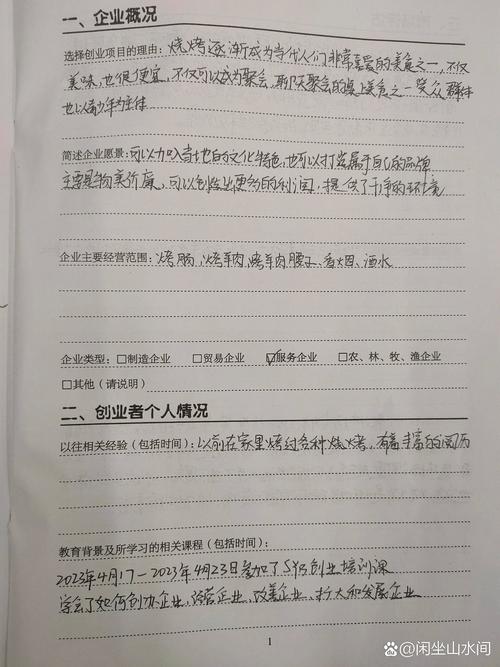 一、企业概况
选择创业项目的理由：烧烤逐渐成为当代人们非常喜爱的美食之一,不仅
美味,也很便宜,不仅可以成为聚会,聊天聚会的桌上美食之一受众群体
也以青少年为主体
简述企业愿景：可以加入当地的文化特色,也可以打发属于自己的品牌
主要是物美价廉,可以创造出更多的利润,提供了干净的环境
企业主要经营范围：烤肠,烤羊肉,烤羊肉腰子、香烟、酒水
企业类型：□制造企业 □贸易企业 ☑服务企业 □农、林、牧、渔企业
□其他（请说明）
二、创业者个人情况
以往相关经验（包括时间）：以前在家里烤过各种烧烤,有着丰富的阅历
教育背景及所学习的相关课程（包括时间）：
2023年4月17—2023年4月23日参加了SYB创业培训课
学会了如何创办企业,经营企业,改善企业、扩大和发展企业
1
@闲坐山水间